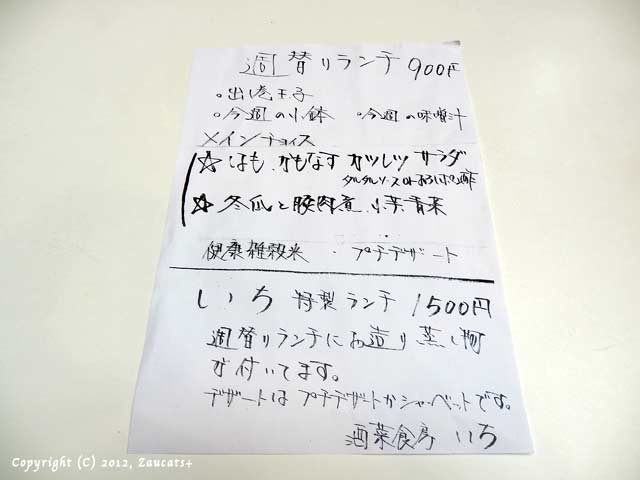 週替りランチ 900円
。出し巻玉子
。今週の小鉢 。今週の味噌汁
メインチョイス
☆ はも、かもなす カツレツ サラダ
タルタルソース or おろしポン酢
☆ 冬瓜と豚肉煮、小芋青菜
健康雑穀米 ・ プチデザート
いち 特製ランチ 1500円
週替りランチにお造り蒸し物
が付いてます。
デザートは プチデザートかシャーベットです。
酒菜食房 いち
Copyright (C) 2012, Zaucats+